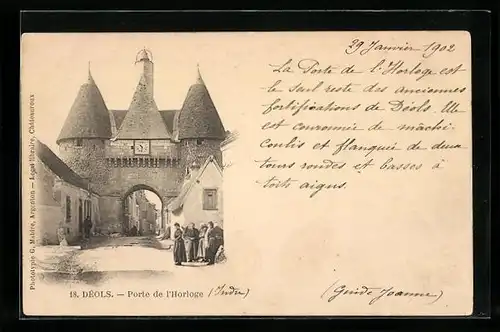 29 Janvier 1902
La Porte de l'Horloge est
le seul reste des anciennes
fortifications de Déols. Elle
est couronnée de mâchi-
coulis et flanquée de deux
tours rondes et basses à
toits aigus.
(Guide Joanne)
18. DÉOLS. — Porte de l'Horloge (Indre)
Phototypie G. Mabire, Argenton — Légat libraire, Châteauroux